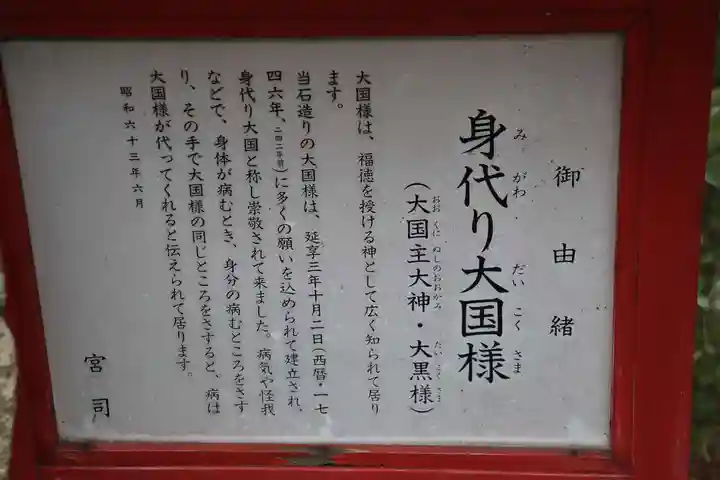 御由緒
身代り大国様
みがわ だいこくさま
（大国主大神・大黒様）
おおくにぬしのおおかみ だいこくさま
大国様は、福徳を授ける神として広く知られて居り
ます。
当石造りの大国様は、延享三年十月二日（西暦・一七
四六年、二四二年前）に多くの願いを込められて建立され、
身代り大国と称し崇敬されて来ました。病気や怪我
などで、身体が病むとき、身分の病むところをさす
り、その手で大国様の同じところをさすると、病は
大国様が代ってくれると伝えられて居ります。
昭和六十三年六月
宮司